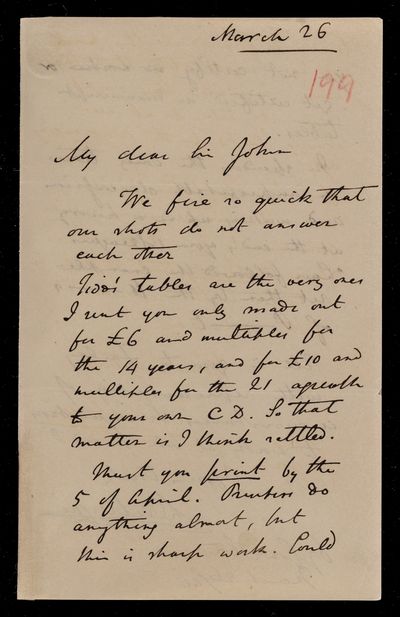 March 26
199
My dear Sir John
We fire so quick that
our shots do not answer
each other
tables are the very ones
I sent you only made out
for £6 and multiples for
the 14 years, and for £10 and
multiples for the 21 agreeable
to your own C D. So that
matter is I think settled.
Must you print by the
5 of April. Printers do
anything almost, but
this is sharp work. Could